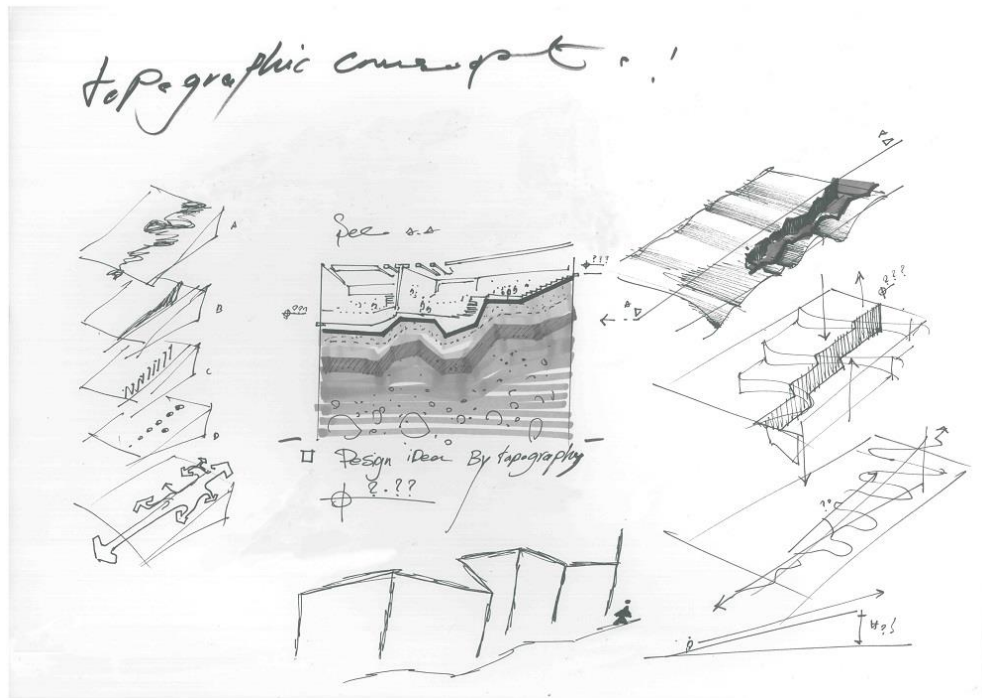 topographic concept..!
A
B
C
D
Sec A-A
???
???
Design idea By topography
?.??
A
A
?.??
??
H?